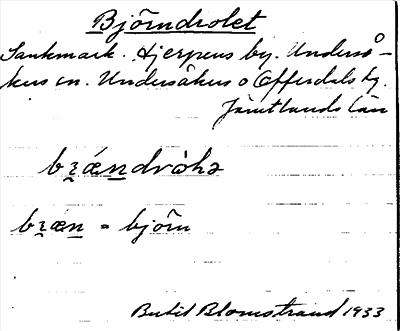 Björndrolet
Sankmark. Hjerpens by. Underså-
kers sn. Undersåkers o Offerdals tg.
Jämtlands län
bræ´ndròhə
bræn = björn
Bertil Blomstrand 1933